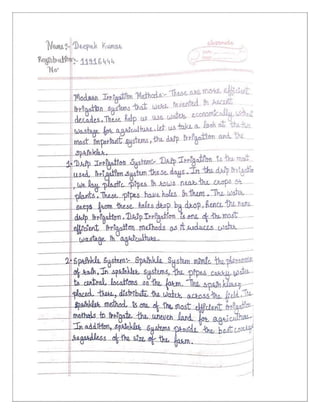 Name:- Deepak Kumar
Registration:- 11916444
No
classmate
Date
Page
Modern Irrigation Methods:- These are more efficient
irrigation systems that were invented in recent
decades. These help us use water economically without
wastage for agriculture. let us take a look at the two
most important systems, the drip irrigation and the
sprinkler.
1. Drip Irrigation System:- Drip Irrigation is the most
used irrigation system these days. In the drip irrigation
, we lay plastic pipes in rows near the crops or
plants. These pipes have holes in them. The water
seeps from these holes drop by drop, hence the name
drip irrigation. Drip Irrigation is one of the most
efficient irrigation methods as it reduces water
wastage in agriculture.
2. Sprinkle System:- Sprinkle System mimic the phenomena
of rain. In sprinkler systems, the pipes carry water
to central locations so the farm. The sprinklers
placed there, distribute the water across the field. The
sprinkler method is one of the most efficient irrigation
methods to irrigate the uneven land for agriculture.
In addition, sprinkler systems provide the best coverage
regardless of the size of the farm.